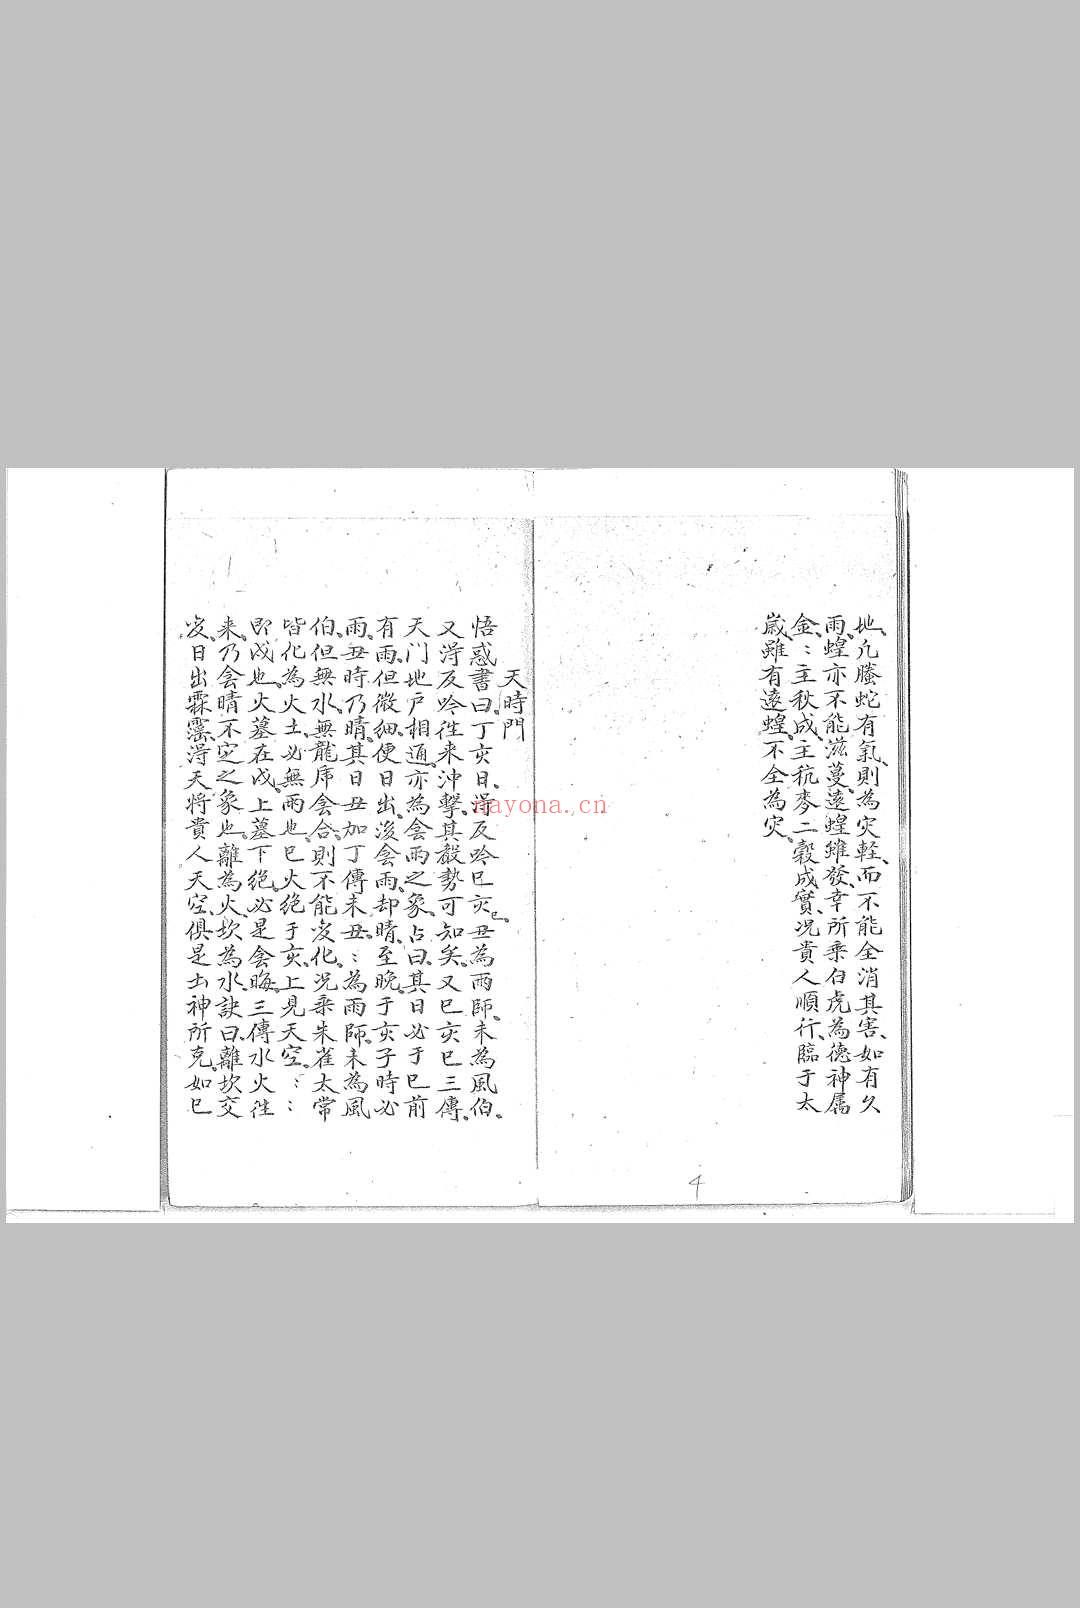 地、凡螣蛇有氣、則為灾軽、而不能全消其害、如有久
雨、蝗亦不能滋蔓、遠蝗雖發、幸所乘白虎為德神属
金、：主秋成、主秔麥二穀成實、况貴人順行、臨于太
歲、雖有遠蝗、不全為灾、
4
天時門
悟惑書曰、丁亥日、得反吟巳亥巳、丑為雨師、未為風伯、
又淂反吟徃来沖擊、其殺勢可知矣、又巳亥巳三傳、
天門地户相通、亦為会雨之象、占曰、其日必于巳前
有雨、但微細、便日出、後会雨、却晴、至晚、于亥子時必
雨、丑時乃晴、其日丑加丁傳未丑、：為雨師、未為風
伯、但無水、無龍虎会合、則不能変化、况乘朱雀太常
皆化為火土、必無雨也、巳火絶于亥、上見天空、：：
即戌也、火墓在戌、上墓下絶、必是会晦、三傳水火徃
来、乃会晴不定之象也、離為火、坎為水、訣曰、離坎交
変、日出霖霪、淂天将貴人天空、俱是土神所克、如巳
nayona.cn